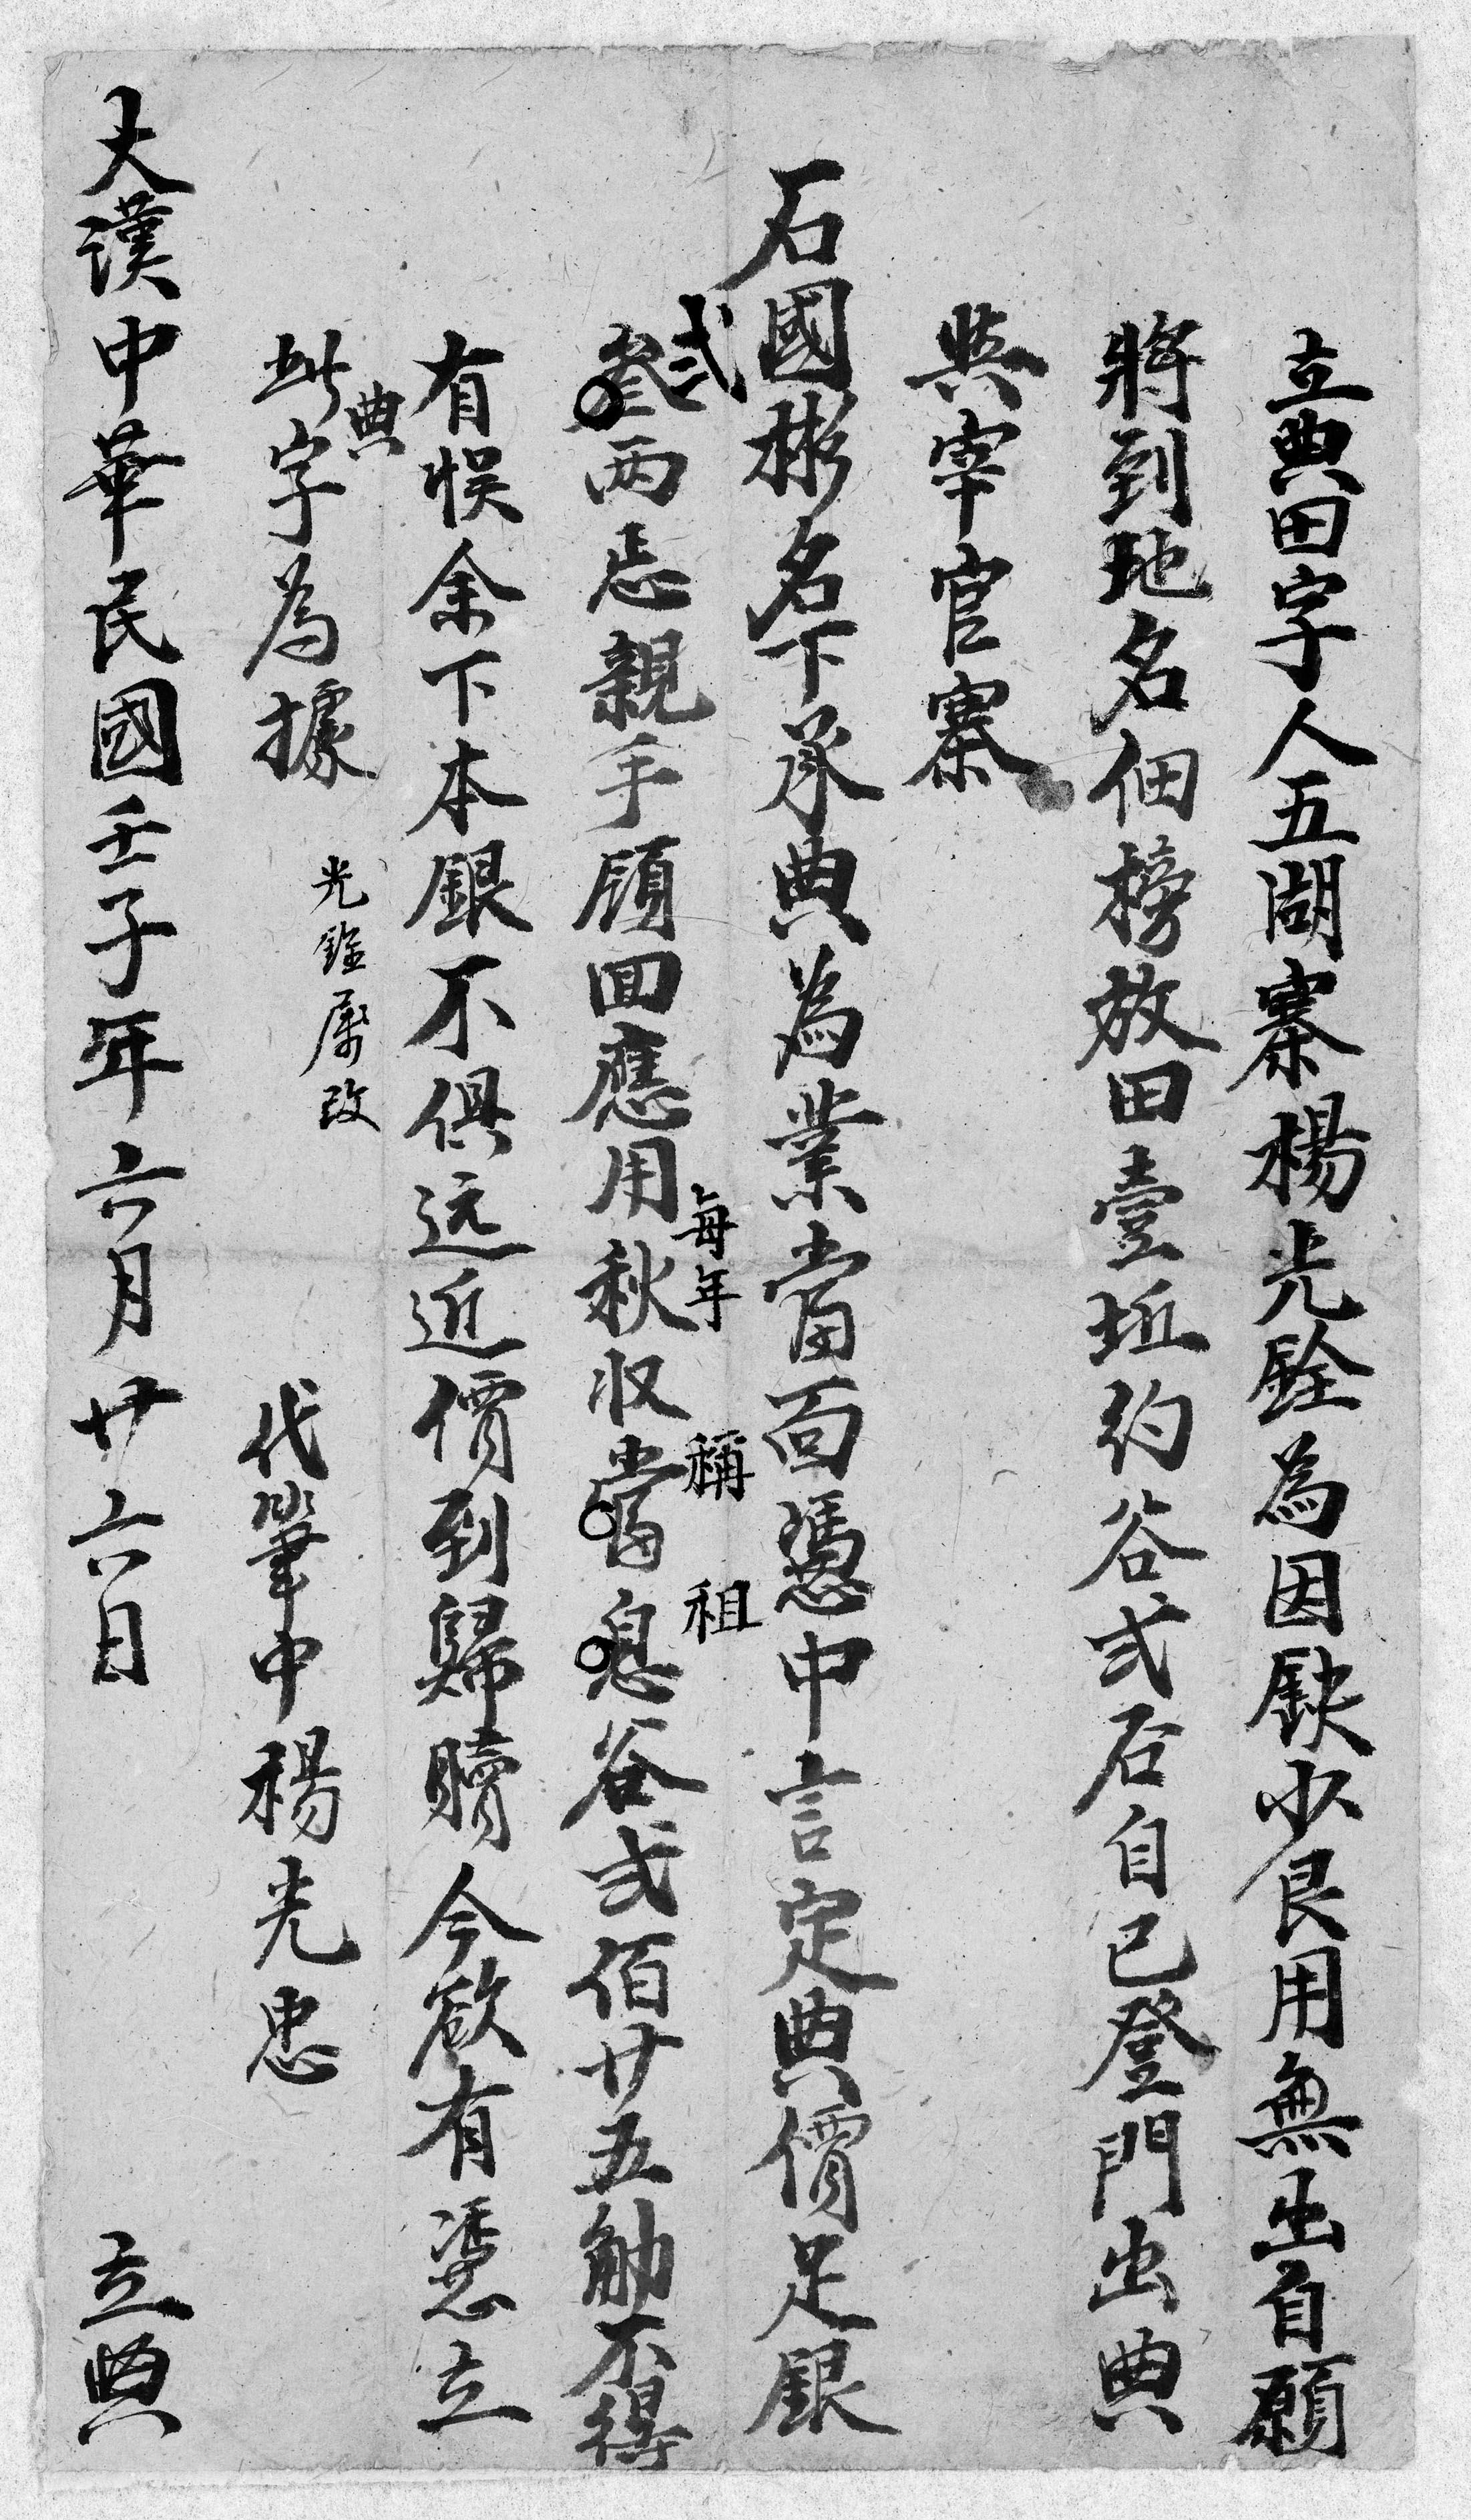 立典田字人五湖寨楊光銓為因缺少艮用無出自願
將到地名佃榜放田壹坵約谷弍石自己登門出典
與宰官寨
石國彬名下承典為業當面憑中言定典價足銀
弍
叁两忎親手領回應用秋收當息谷弍佰廿五觔不得
每年 稱 祖
有悮余下本銀不俱远近價到歸贖今欲有憑立
典
此字為據
光銓属改
代筆中楊光忠
大漢中華民國壬子年六月廿六日 立典